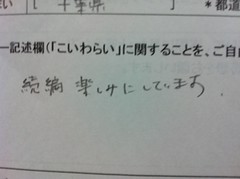 千葉県 *都道
一記述欄(「こいわらい」に関することを、ご自
続編 楽しみにしています